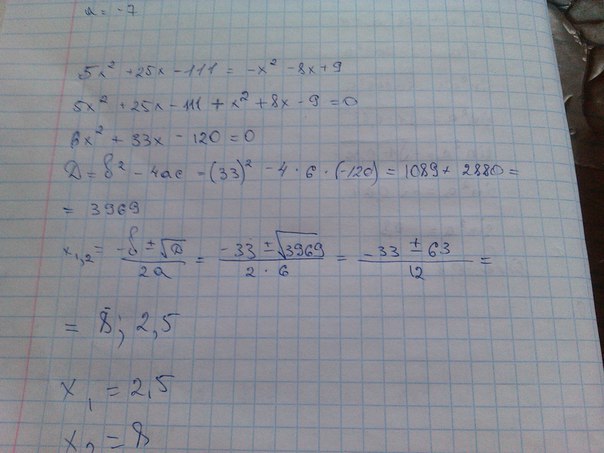 a = -7
5x² + 25x - 111 = -x² - 8x + 9
5x² + 25x - 111 + x² + 8x - 9 = 0
6x² + 33x - 120 = 0
D = b² - 4ac = (33)² - 4 · 6 · (-120) = 1089 + 2880 =
= 3969
x₁,₂ = (-b ± √D)/(2a) = (-33 ± √3969)/(2 · 6) = (-33 ± 63)/12 =
= 8; 2,5
x₁ = 2,5
x₂ = 8